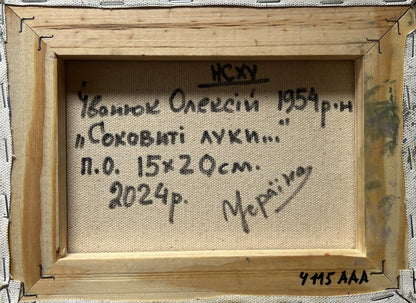 НСХУ
Іванюк Олексій 1954р.н
„Соковиті луки..."
п.о. 15х20см.
2024р.
Україна
4115 ААА